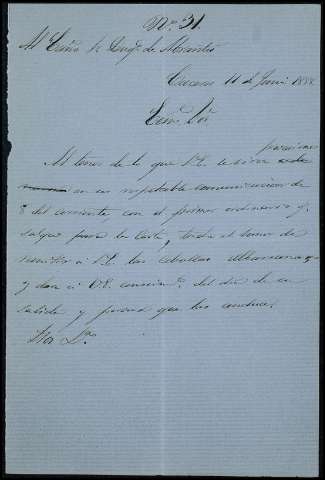 Nº 31.
Al Exmo Sr Duqe de Abrantes
Caceres 11 de Junio 1888.
Exmo Sor
Al tenor de lo que V.E. se sirve
en su respetable comunicacion de
8 del corriente con el primer ordinario q.
salga para la Corte, tendre el honor de
remitir a V.E. las cebollas
y dar a V.E. conocimto del dia de su
salida y persona que las conduce.